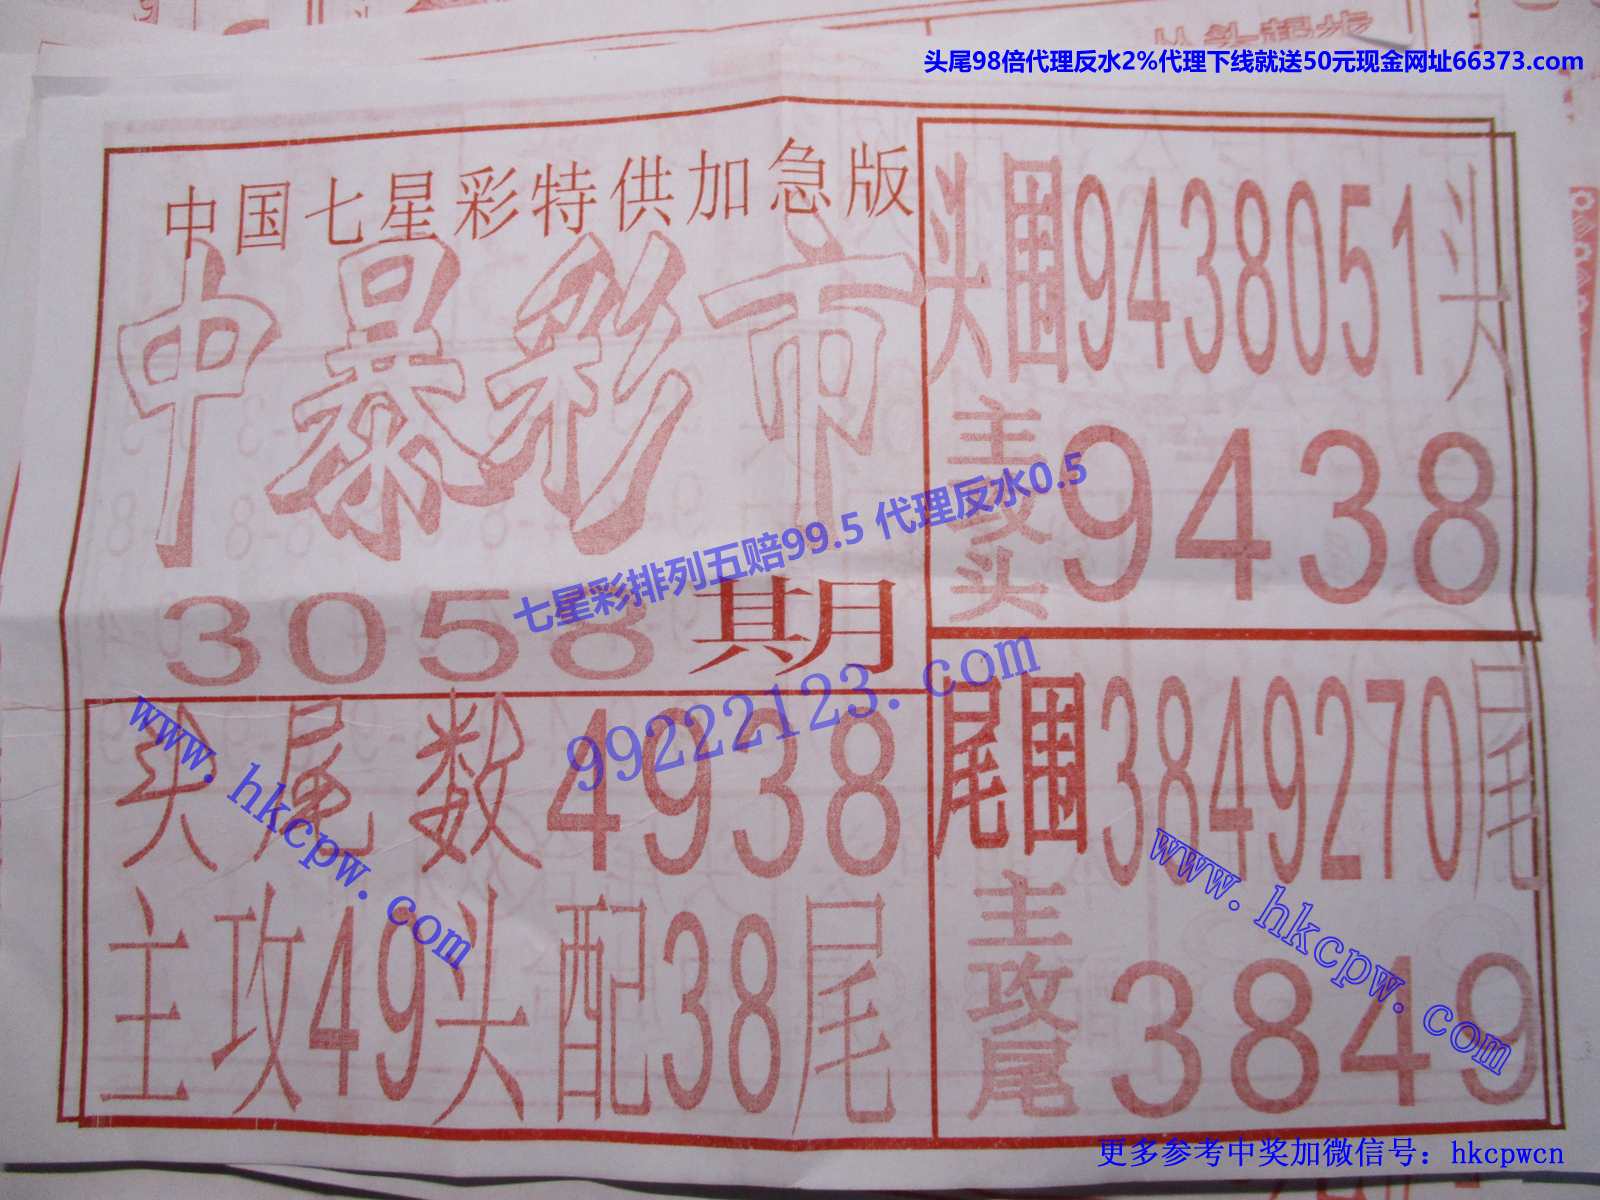 头尾98倍代理反水2%代理下线就送50元现金网址66373.com
中国七星彩特供加急版
中暴彩市
3058期
七星彩排列五赔99.5 代理反水0.5
99222123.com
头尾数4938
主攻49头配38尾
www.hkcpw.com
头围9438051头
主攻头9438
尾围3849270尾
主攻尾3849
www.hkcpw.com
更多参考中奖加微信号：hkcpwcn